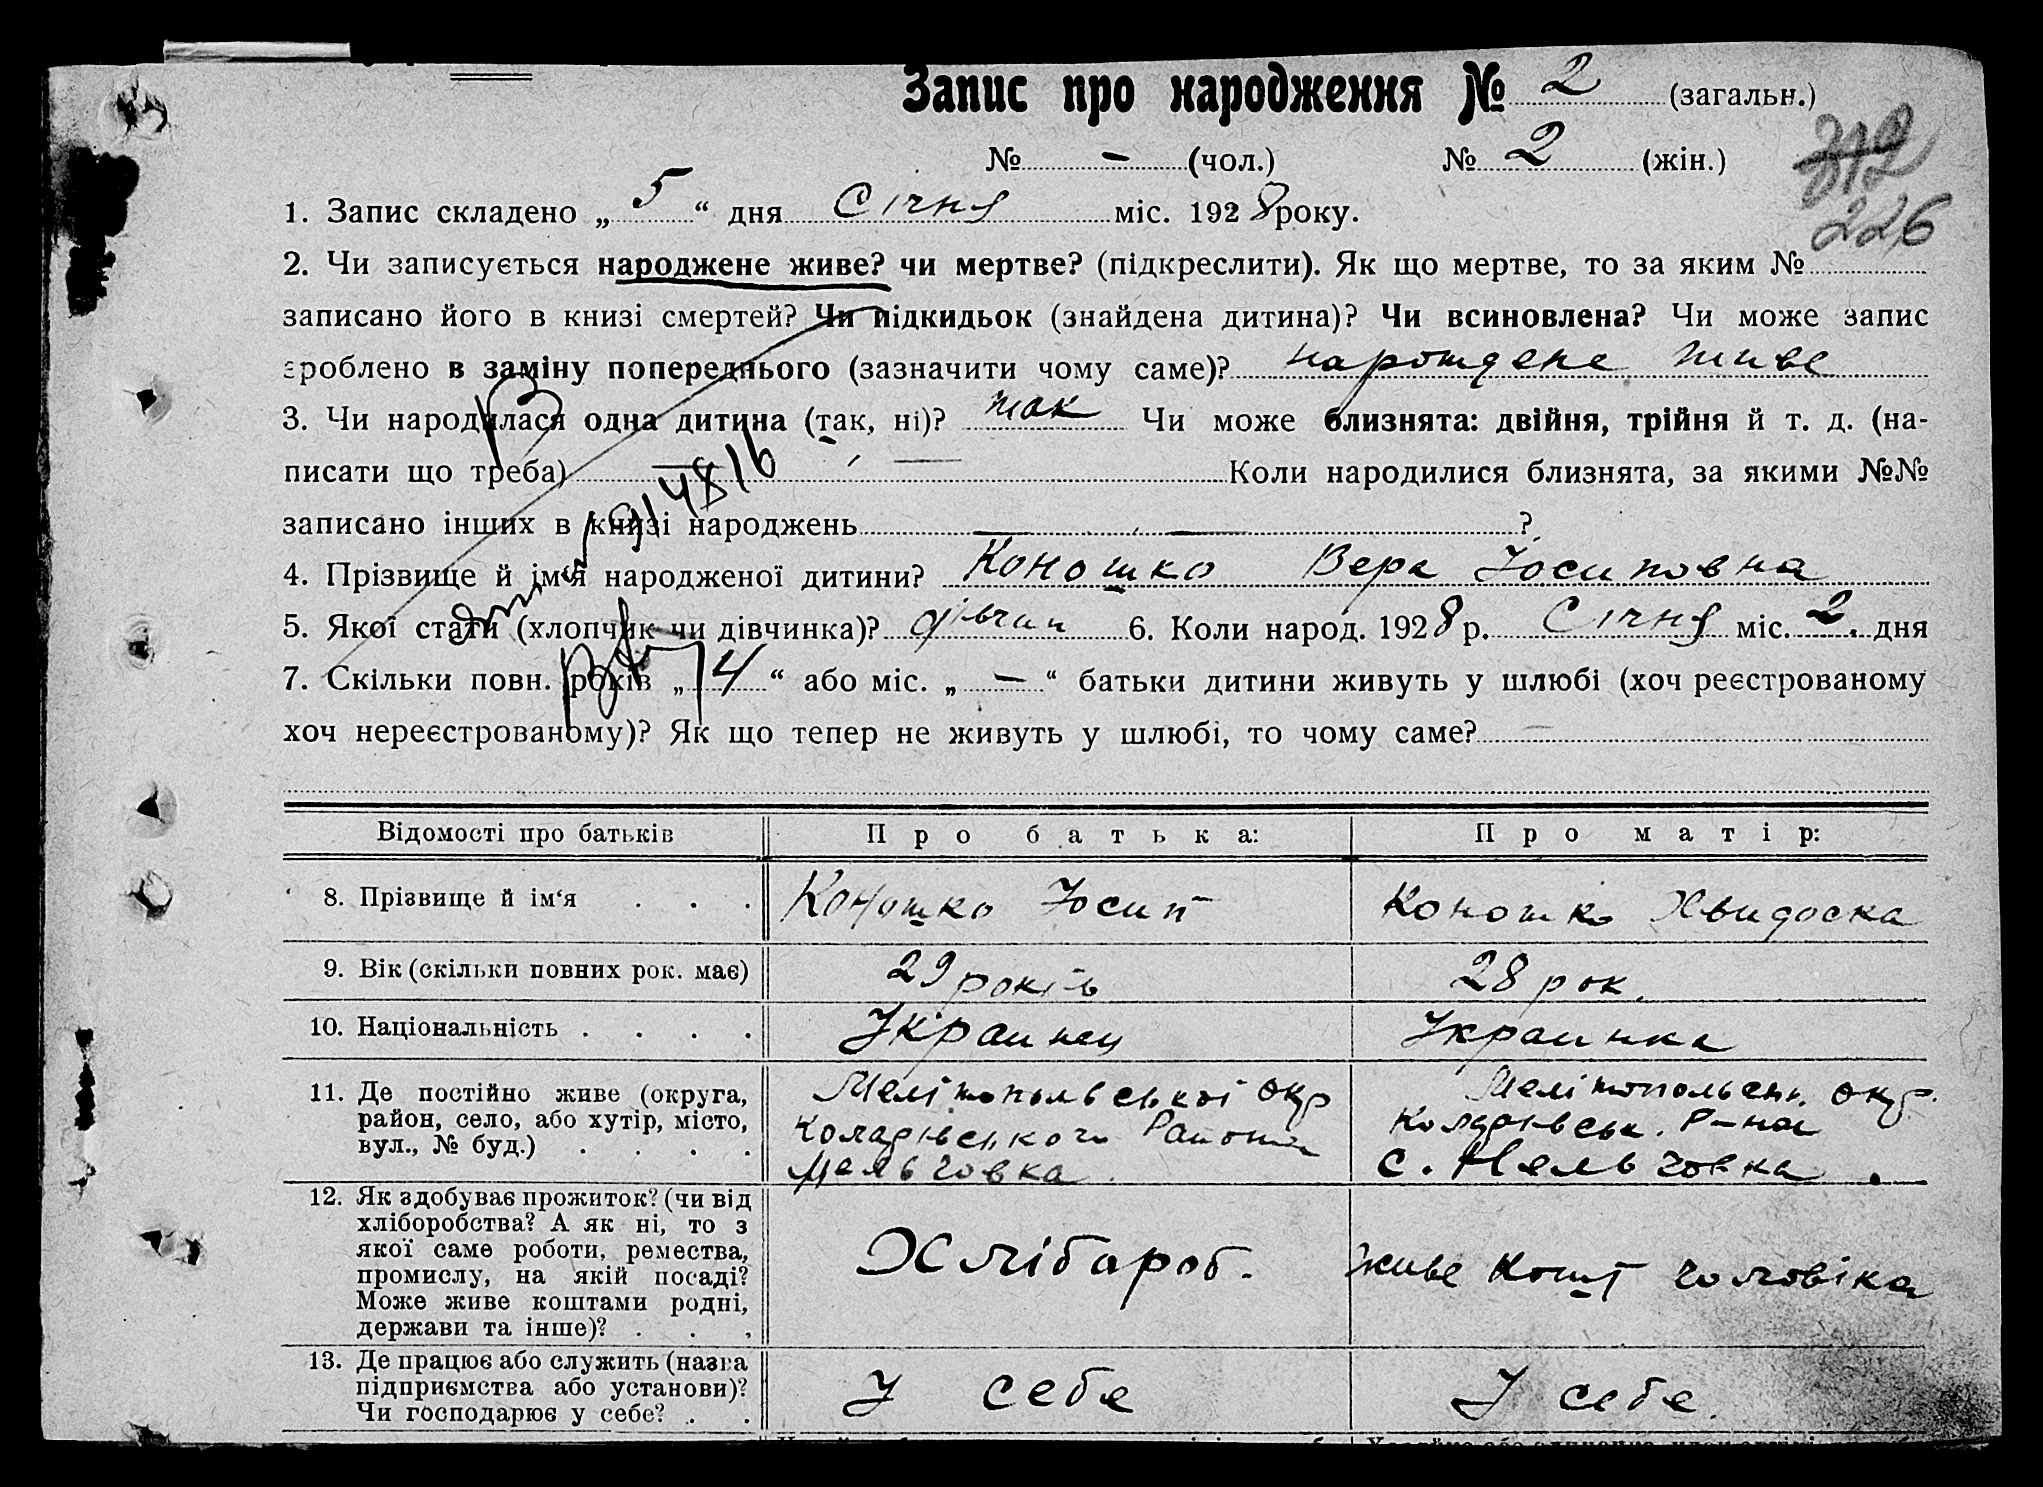 Запис про народження № 2 (загальн.)
№ - (чол.) № 2 (жін.)
312
226
1. Запис складено „ 5 “ дня Січня міс. 1928 року.
2. Чи записується народжене живе? чи мертве? (підкреслити). Як що мертве, то за яким №
записано його в книзі смертей? Чи підкидьок (знайдена дитина)? Чи всиновлена? Чи може запис
зроблено в заміну попереднього (зазначити чому саме)? народжене живе
3. Чи народилася одна дитина (так, ні)? так Чи може близнята: двійня, трійня й т. д. (на-
писати що треба) — — Коли народилися близнята, за якими №№
записано інших в книзі народжень — — ?
914816
4. Прізвище й ім'я народженої дитини? Коношко Вера Йосиповна
5. Якої стати (хлопчик чи дівчинка)? дівчин 6. Коли народ. 1928 р. Січня міс. 2. дня
7. Скільки повн. років „ 4 “ або міс. „ — “ батьки дитини живуть у шлюбі (хоч реєстрованому
хоч нереєстрованому)? Як що тепер не живуть у шлюбі, то чому саме? —
Відомості про батьків Про батька: Про матір:
8. Прізвище й ім‘я . . . Коношко Йосип Коношко Хвидоска
9. Вік (скільки повних рок. має) 29 років 28 рок.
10. Національність . . . . Украинец Украинка
11. Де постійно живе (округа, Мелітопольської окр Мелітопольськ. окр.
район, село, або хутір, місто, Коладівського Района Коладівськ. Р-на
вул., № буд.) . . . . с.
12. Як здобуває прожиток? (чи від
хліборобства? А як ні, то з
якої саме роботи, ремества, Хлібароб. живе кошт чоловіка
промислу, на якій посаді?
Може живе коштами родні,
держави та інше)? . . .
13. Де працює або служить (назва
підприємства або установи)? У себе У себе.
Чи господарює у себе? . .